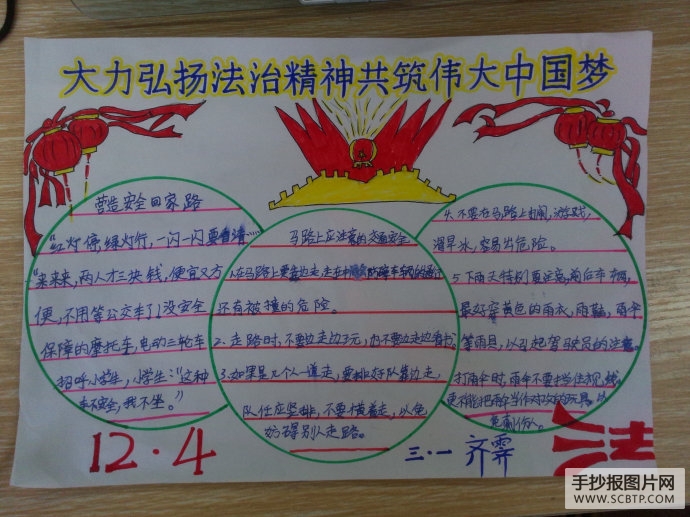 大力弘扬法治精神共筑伟大中国梦
营造安全回家路
“红灯停,绿灯行,一闪一闪要看清……
“来来来,两人才三块钱,便宜又方
便,不用等公交车了!没安全
保障的摩托车,电动三轮车
招呼小学生,小学生:“这种
车不安全,我不坐。”
马路上应注意的交通安全
1.在马路上要靠边走,走在中 防障车辆的通行
还有被撞的危险。
2.走路时,不要边走边玩,也不要边走边看书
3.如果是几个人一道走,要排好队靠边走,
队伍应竖排,不要横着走,以免
妨碍别人走路。
4.不要在马路上打闹,游戏,
滑旱冰,容易出危险。
5下雨天特别要注意,前后车辆,
最好穿黄色的雨衣,雨鞋,雨伞
等雨具,以引起驾驶员的注意。
打雨伞时,雨伞不要挡住视线,
更不能把雨伞当作对攻的玩具,以
免刺伤人。
12·4
三·一 齐霁
法
手抄报图片网
WWW.SCBTP.COM